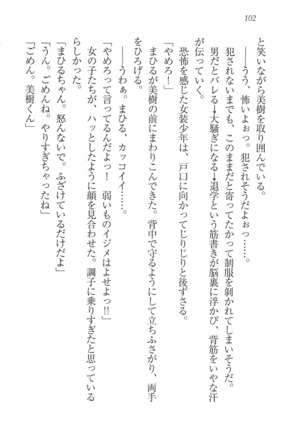 102
と笑いながら美樹を取り囲んでいる。
――うう、怖いよぉっ。犯されそうだよぉっ……。
犯されないまでも、このままだと寄ってたかって制服を剥かれてしまいそうだ。
男だとバレる→大騒ぎになる→退学という筋書きが脳裏に浮かび、背筋をいやな汗
が伝っていく。
恐怖を感じた女装少年は、戸口に向かってじりじりと後ずさる。
「やめろ！」
まひるが美樹の前にまわりこんできた。背中で守るようにして立ちふさがり、両手
をひろげる。
――うわぁ。まひる、カッコイイ……。
「やめろって言ってるんだよっ！　弱いものイジメはよせよっ!!」
女の子たちが、ハッとしたように顔を見合わせた。調子に乗りすぎたと思っている
らしかった。
「まひるちゃん。怒んないで。ふざけているだけだよ」
「うん。ごめんね。やりすぎちゃったね」
「ごめん。美樹くん」